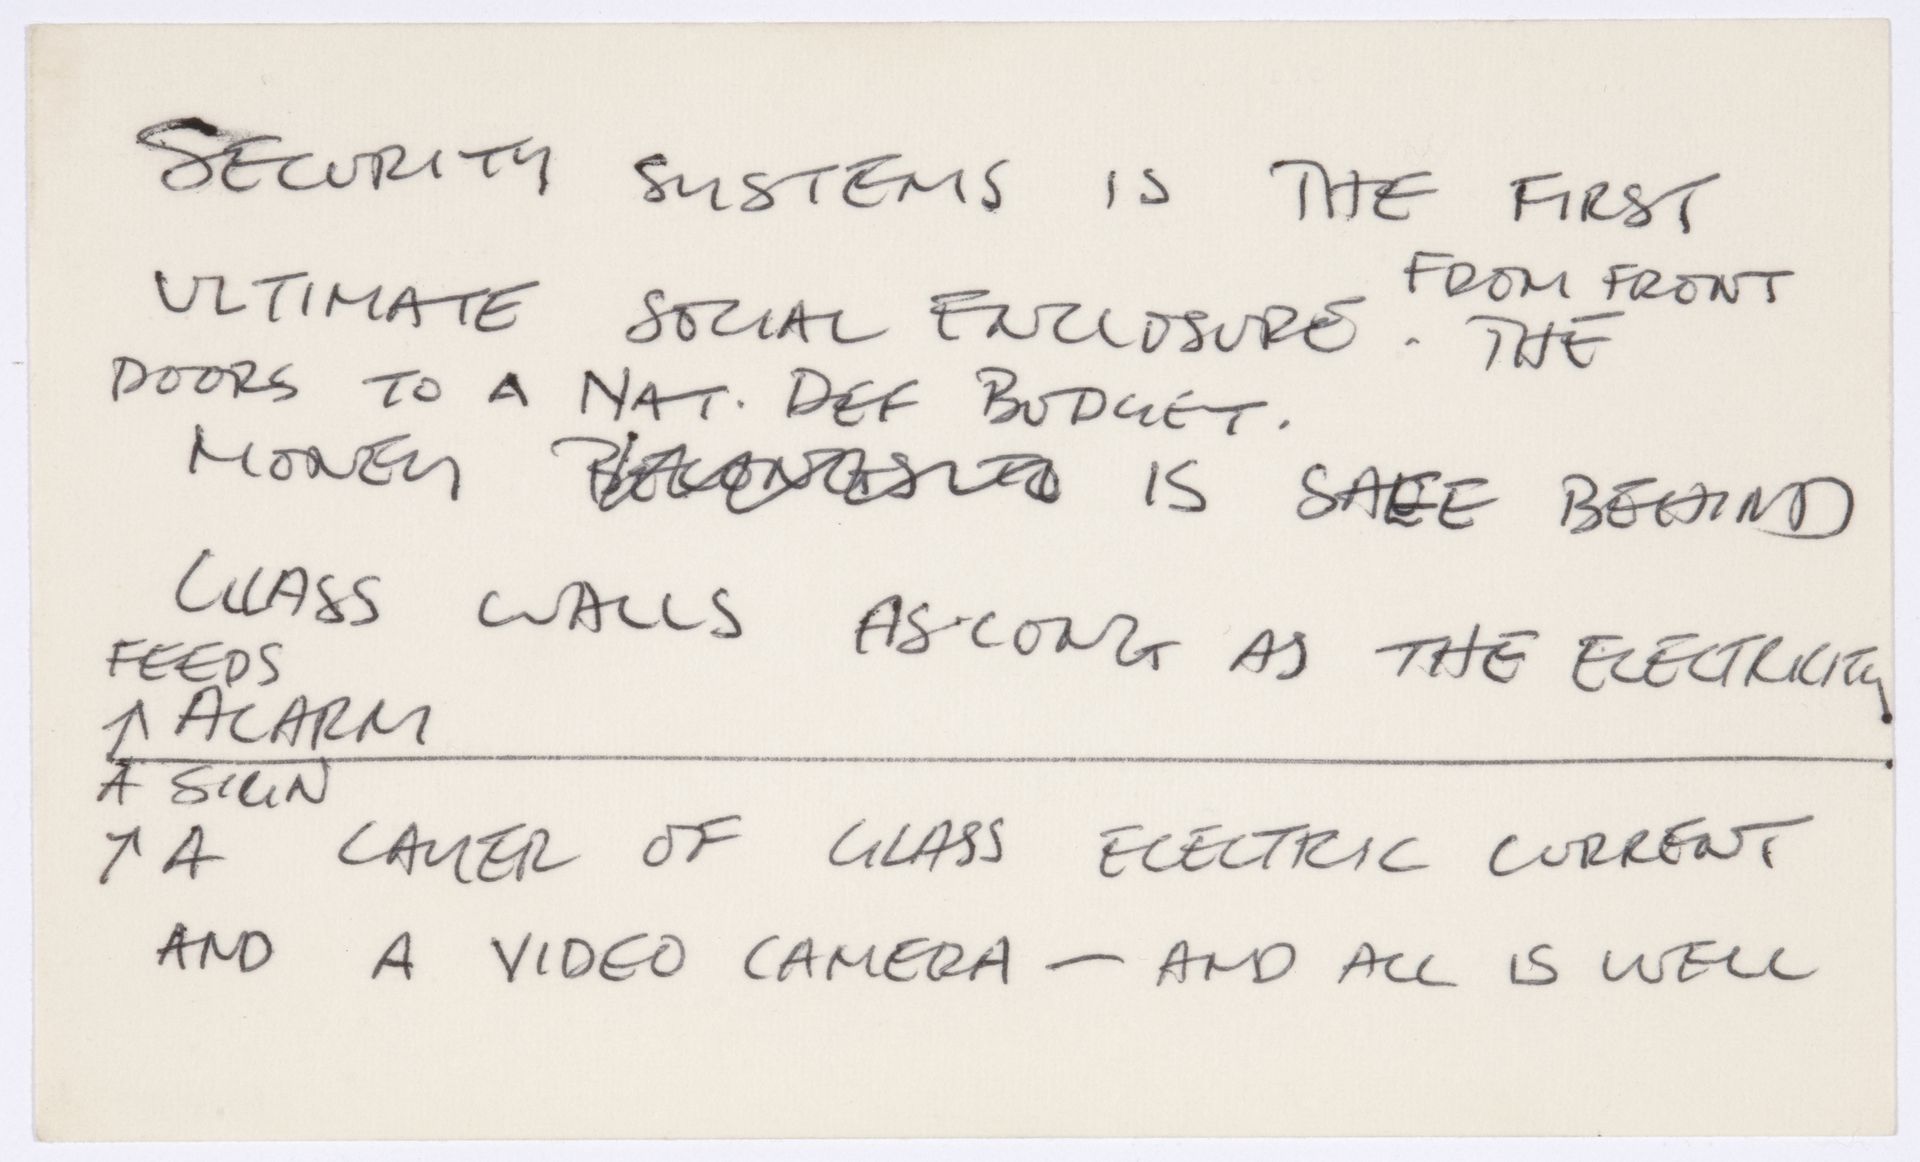 SECURITY SYSTEMS IS THE FIRST
FROM FRONT
ULTIMATE SOCIAL ENCLOSURE. THE
DOORS TO A NAT. DEF BUDGET.
MONEY IS SAFE BEHIND
GLASS WALLS AS LONG AS THE ELECTRICITY
FEEDS
↑ ALARM
A SIRIN
↑ A LAYER OF GLASS ELECTRIC CURRENT
AND A VIDEO CAMERA — AND ALL IS WELL